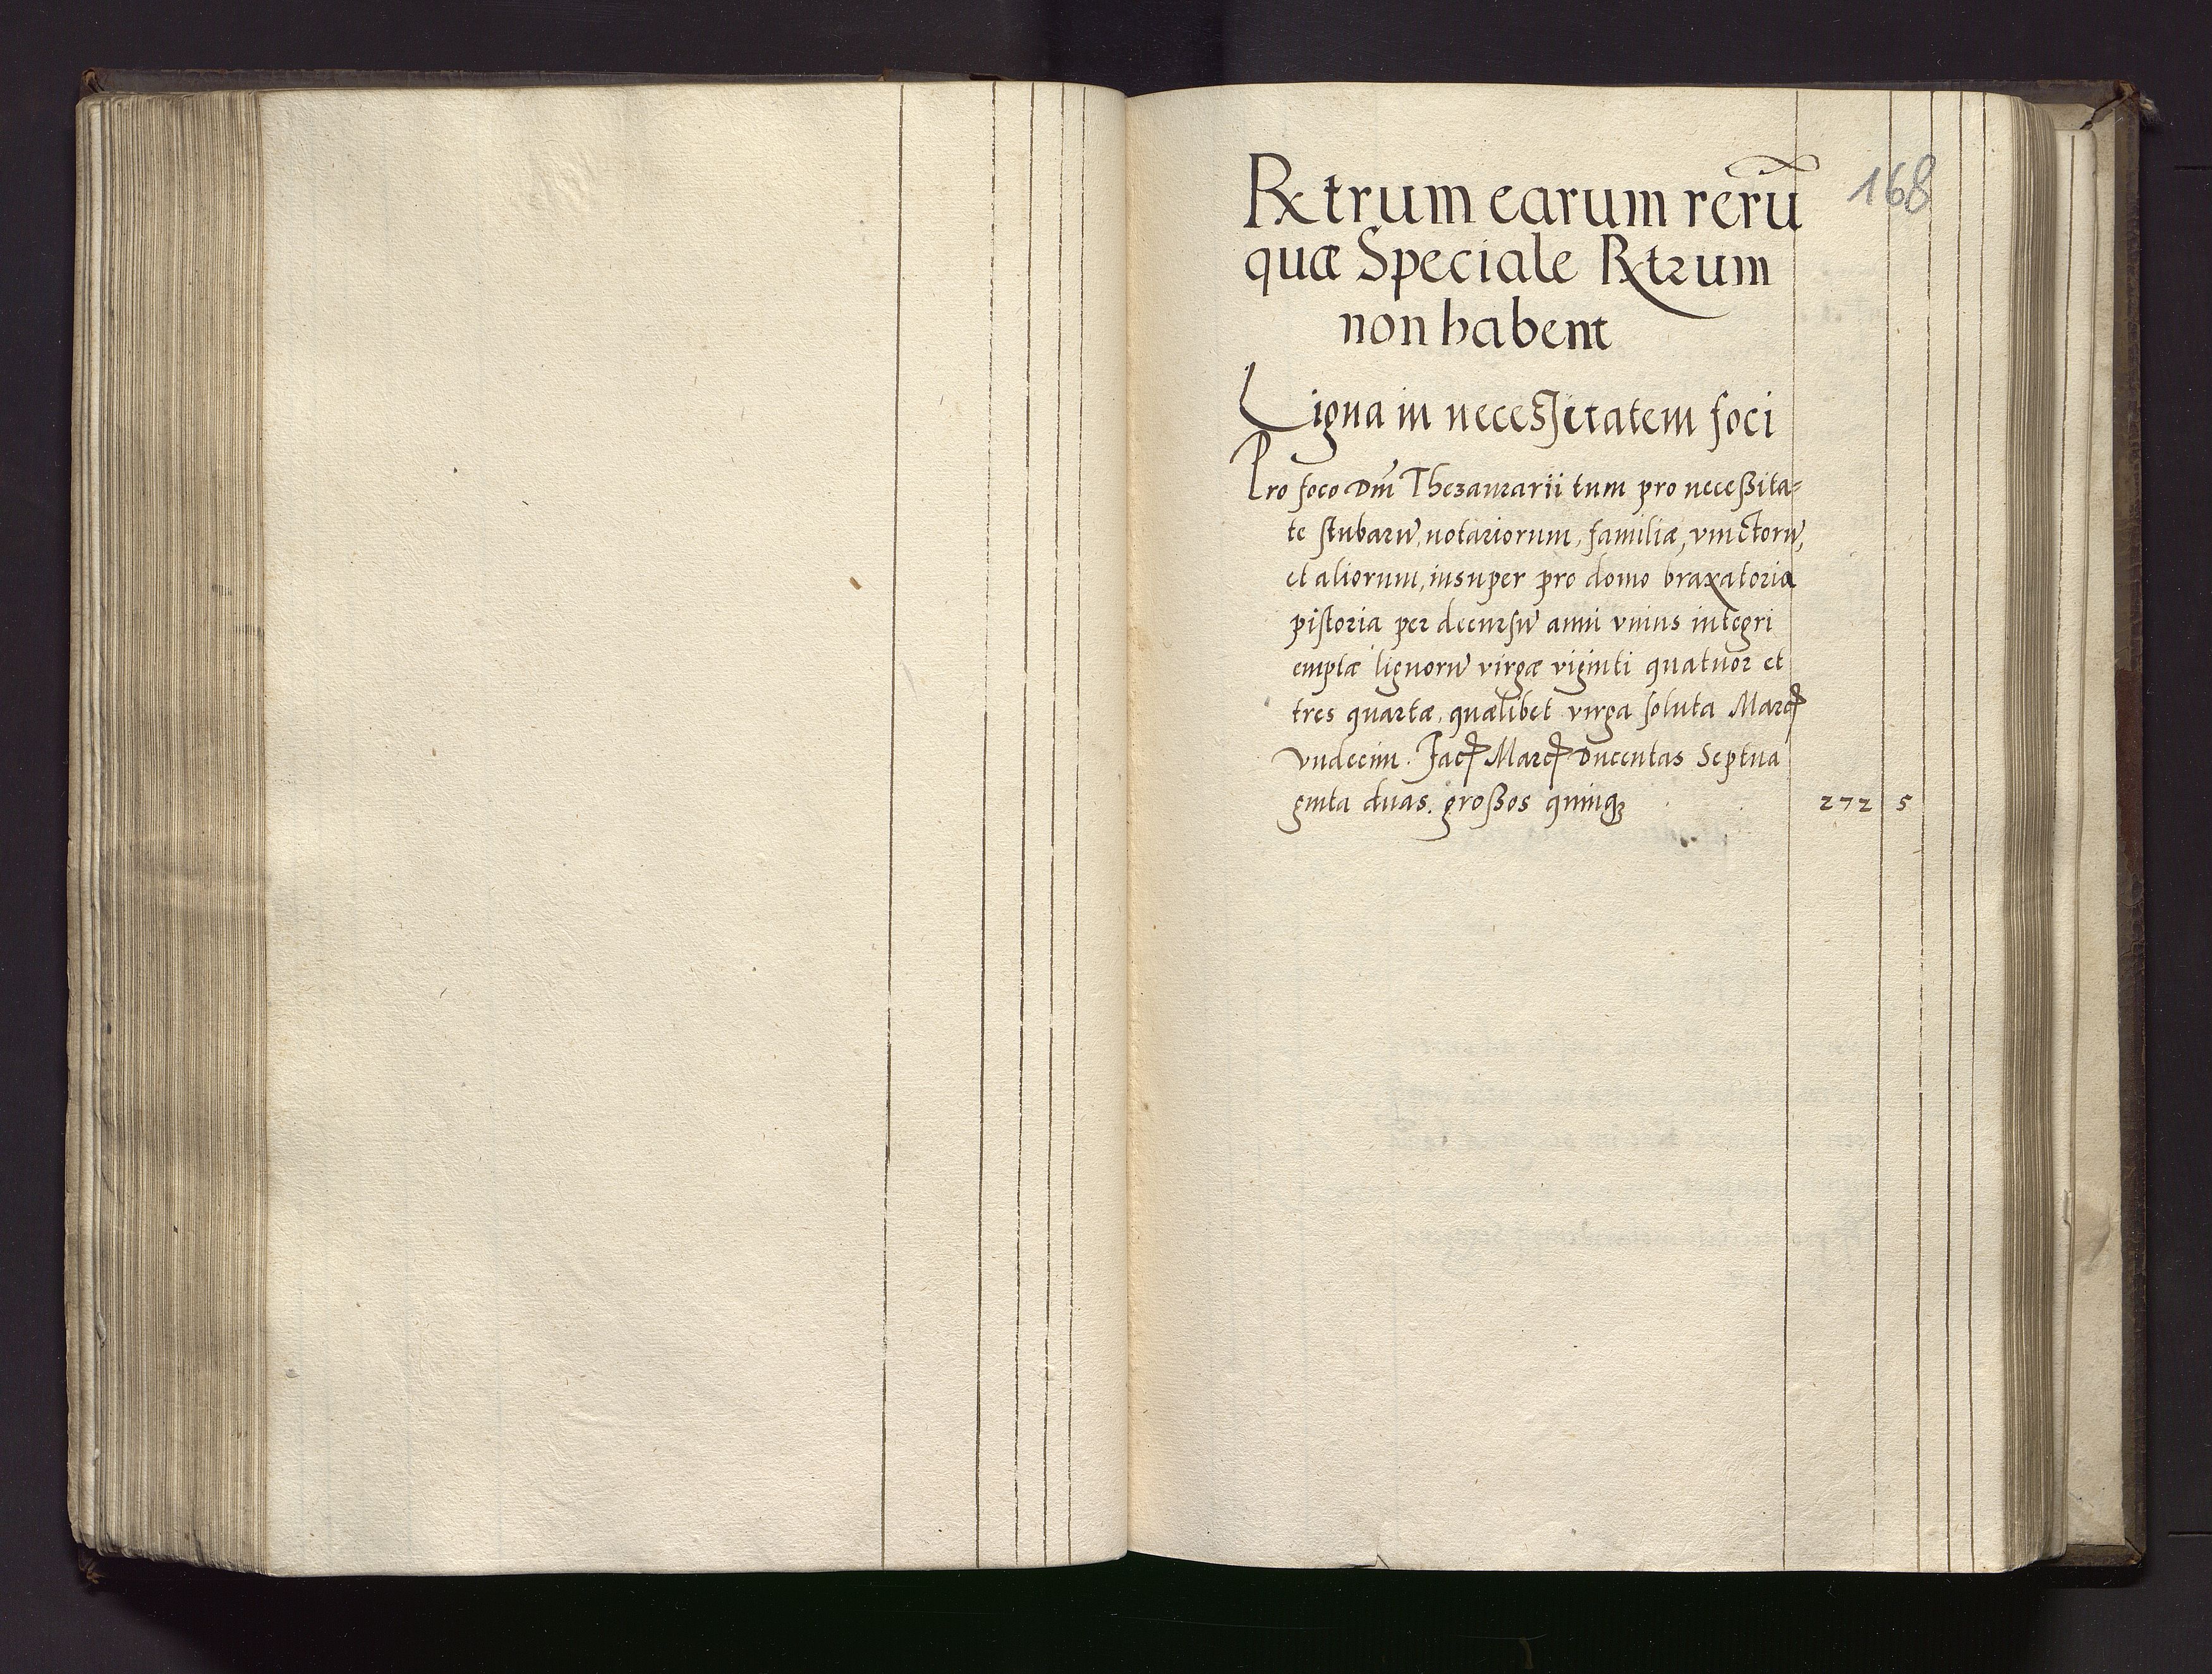 Rxtrum earum rerū
168
quæ Speciale Rxtrum
non habent
Ligna in necessitatem foci
Pro foco Dm̄ Thezaurarii tum pro neceßita=
te stubarū, notariorum, familiæ, vinctorū,
et aliorum, insuper pro domo braxatoria
pistoria per decursū anni vnius integri
emptæ lignorū virgæ viginti quatuor et
tres quartæ, quælibet virga soluta Marcꝭ
vndecim. Facꝭ Marcꝭ Ducentas Septua
ginta duas. großos quinqꝫ 272 5